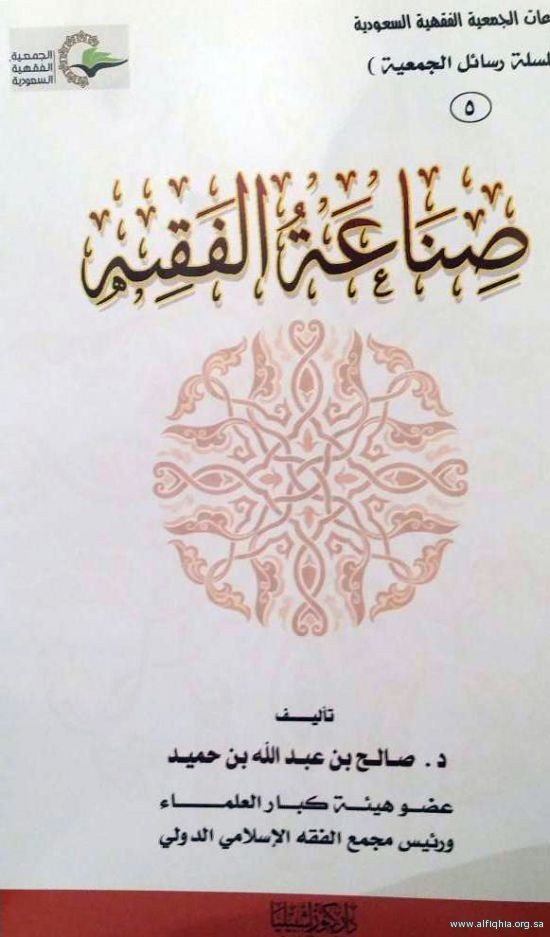 عات الجمعية الفقهية السعودية
لسلة رسائل الجمعية )
٥
الجمعية
الفقهية
السعودية
صِنَاعَةُ الفَقِيه
تأليف
د. صالح بن عبد الله بن حميد
عضو هيئة كبار العلماء
ورئيس مجمع الفقه الإسلامي الدولي
دار كنوز إشبيليا
www.alfiqhia.org.sa